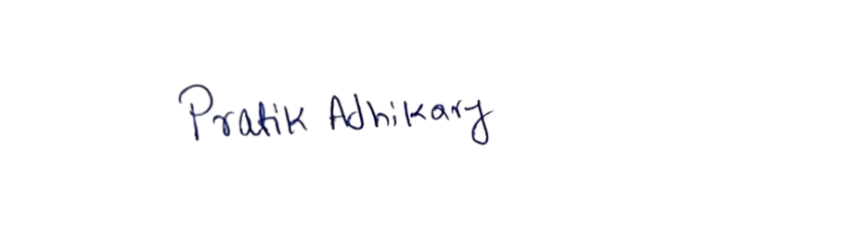 Pratik Adhikary